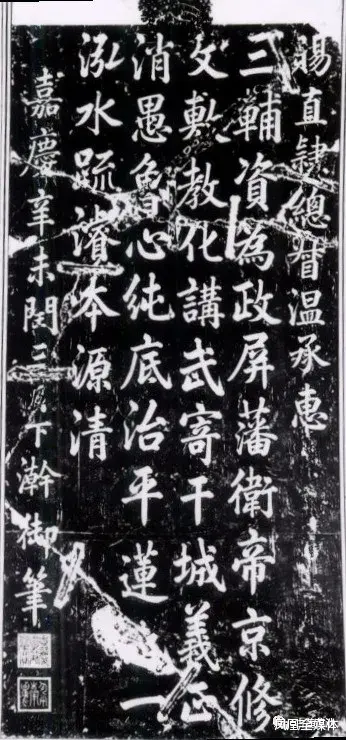 賜直隸總督温承惠
三輔資為政屏藩衛帝京修
文敷教化講武寄干城義正
消愚魯心純底治平蓮一
泓水疏濬本源清
嘉慶辛未閏三月下澣御筆
凤凰全媒体